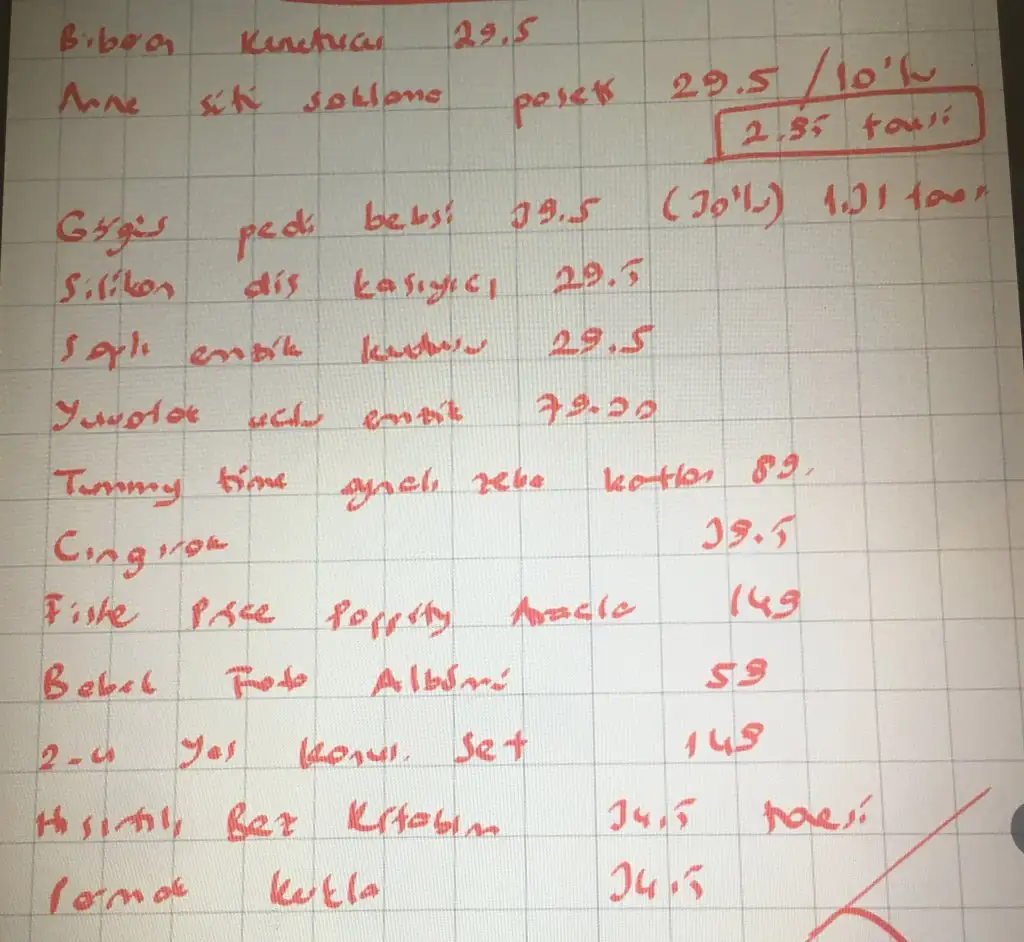 Biberon Kurutucu 29.5
Anne sütü saklama poşeti 29.5 /10'lu
2.95 tanesi
Göğüs pedi bebsi 39.5 (30'lu) 1.31 tane
Silikon diş kaşıyıcı 29.5
Saplı emzik kutusu 29.5
Yuvarlak uclu emzik 79.90
Tummy time aynalı zebra kartları 89.
Cıngırak 39.5
Fisher Price Poppity Aracla 149
Bebek Foto Albümü 59
2-4 Yaş Konuş. Set 149
Hışırtılı Bez Kitabım 34.5 tanesi
Parmak Kukla 34.5